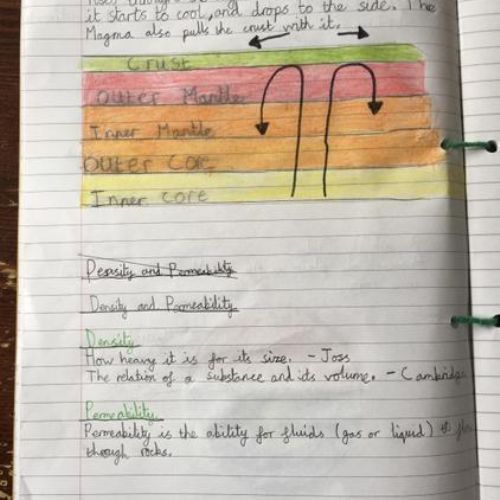 it starts to cool, and drops to the side. The
Magma also pulls the crust with it.
Crust
Outer Mantle
Inner Mantle
Outer Core
Inner core
Density and Permeability
Density and Permeability
Density
How heavy it is for its size. - Joss
The relation of a substance and its volume. - Cambridge
Permeability
Permeability is the ability for fluids (gas or liquid) to flow
through rocks.